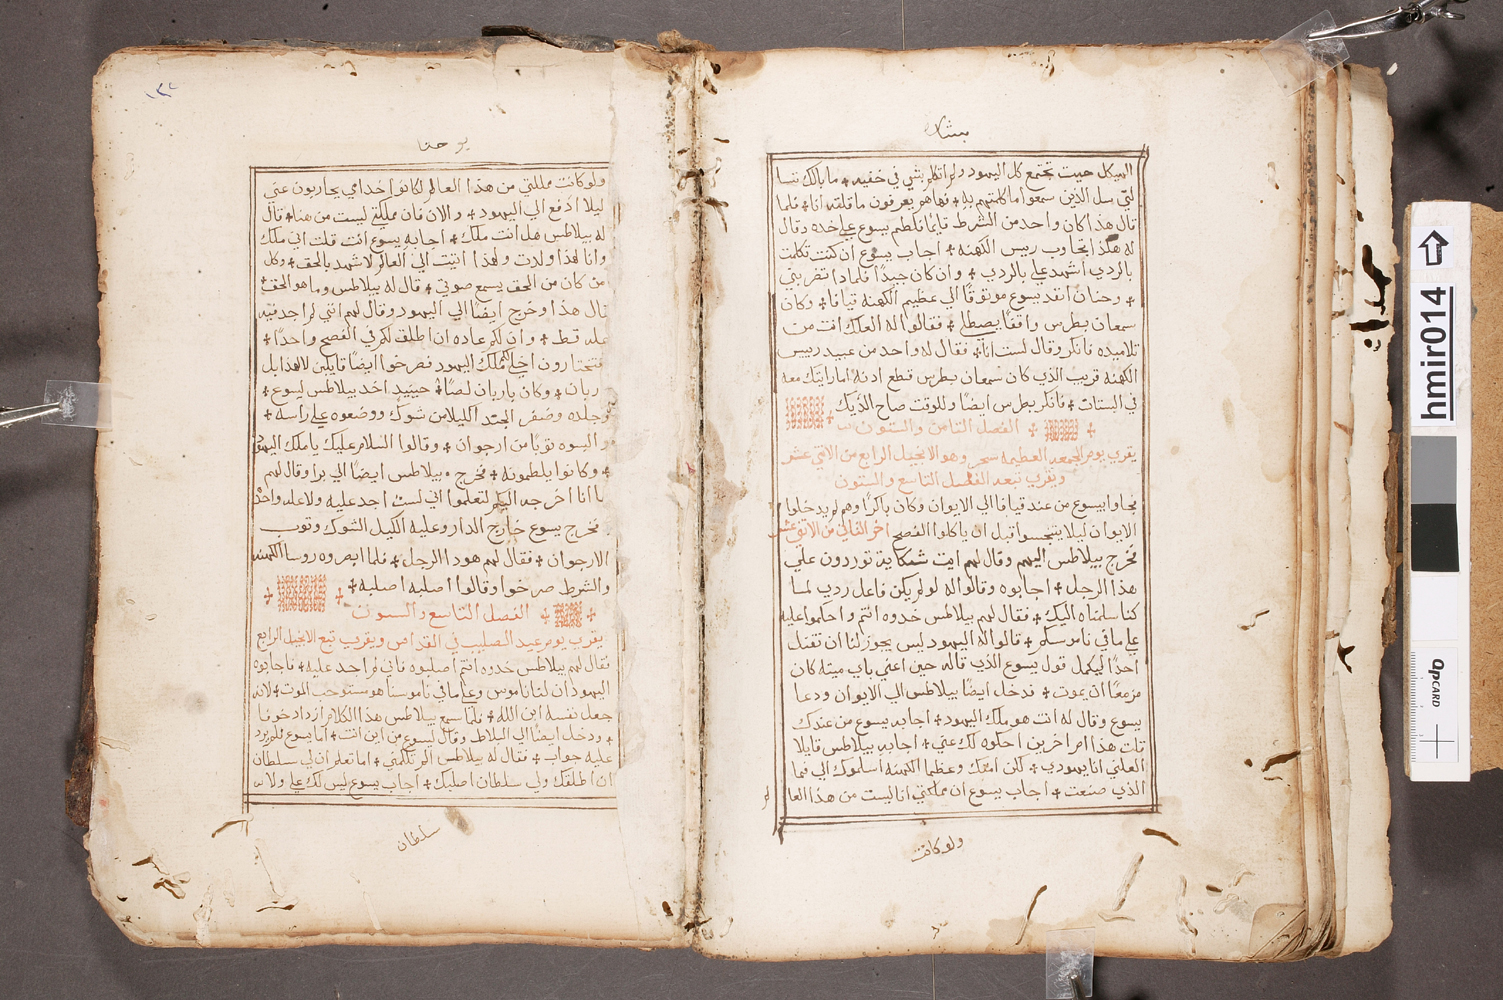 بشارة
الهيكل حيث تجتمع كل اليهود ولم اتكلم بشي في خفيه ما بالك تسا
لني سل الذين سمعوا ما كلمتهم به فها هو يعرفون ما قلته انا فلما
قال هذا كان واحد من الشرط قايما فلطم يسوع علي خده وقال
له هكذا تجاوب رييس الكهنه اجاب يسوع ان كنت تكلمت
بالردي اشهد علي بالردي وان كان جيدا فلماذا تضربني
وحنان انفد يسوع موثوقا الي عظيم الكهنه قيافا وكان
سمعان بطرس واقفا يصطلي فقالوا له العلك انت من
تلاميذه فانكر وقال لست انا فقال له واحد من عبيد رييس
الكهنه قريب الذي كان سمعان بطرس قطع ادنه اما رايتك معه
في البستان فانكر بطرس ايضا وللوقت صاح الديك
الفصل الثامن والستون
يقرب يوم الجمعه العظيمه سحر وهو الانجيل الرابع من الاثني عشر
ويقرب تبعه الفصل التاسع والستون
فجاوا بيسوع من عند قيافا الي الايوان وكان باكرا وهم لم يدخلوا
الايوان ليلا يتنجسوا قبل ان ياكلوا الفصح اخر الثالث من الاثني عشر
فخرج بيلاطس اليهم وقال لهم ايت شكاية توردون علي
هذا الرجل اجابوه وقالوا له لو لم يكن فاعل ردي لما
كنا سلمناه اليك فقال لهم بيلاطس خدوه انتم واحكموا عليه
علي ما في ناموسكم فقالوا له اليهود ليس يجوز لنا ان نقتل
احدا ليكمل قول يسوع الذي قاله حين اعني باي ميته كان
مزمعا ان يموت فدخل ايضا بيلاطس الي الايوان ودعا
يسوع وقال له انت هو ملك اليهود اجابه يسوع من عندك
قلت هذا ام اخرين احكوه لك عني اجابه بيلاطس قايلا
العلي انا يهودي لكن امتك وعظما الكهنه اسلموك الي فما
الذي صنعت اجاب يسوع ان مملكتي انا ليست من هذا العا
لم
ولو كانت
١٣٢
يوحنا
ولو كانت مملكتي من هذا العالم لكانوا خدامي يحاربون عني
ليلا ادفع الي اليهود والان فان مملكتي ليست من هنا قال
له بيلاطس هل انت ملك اجابه يسوع انت قلت اني ملك
وانا لهذا ولدت ولهذا اتيت الي العالم لاشهد بالحق وكل
من كان من الحق يسمع صوتي قال له بيلاطس وما هو الحق
قال هذا وخرج ايضا الي اليهود وقال لهم انني لم اجد فيه
عله قط وان لكم عاده ان اطلق لكم في الفصح واحدا
فتختارون اخلي لكم ملك اليهود فصرخوا ايضا قايلين لا هذا بل
باربان وكان باربان لصا حينيد اخد بيلاطس ليسوع
وجلده وضفر الجند اكليلا من شوك ووضعوه علي راسه
والبسوه ثوبا من ارجوان وقالوا السلام عليك يا ملك اليهود
وكانوا يلطمونه فخرج بيلاطس ايضا الي برا وقال لهم
ها انا اخرجه اليكم لتعلموا اني لست اجد عليه ولا عله واحده
فخرج يسوع خارج الدار وعليه اكليل الشوك وثوب
الارجوان فقال لهم هودا الرجل فلما ابصروه روسا الكهنه
والشرط صرخوا وقالوا اصلبه اصلبه
الفصل التاسع والستون
يقرب يوم عيد الصليب في القداس ويقرب تبع الانجيل الرابع
فقال لهم بيلاطس خدوه انتم اصلبوه فاني لم اجد عليه فاجابوه
اليهود ان لنا ناموس وعلي ما في ناموسنا هو مستوجب الموت لانه
جعل نفسه ابن الله فلما سمع بيلاطس هذا الكلام ازداد خوفا
ودخل ايضا الي البلاط وقال ليسوع من اين انت اما يسوع فلم يرد
عليه جواب فقال له بيلاطس الم تكلمني اما تعلم ان لي سلطان
ان اطلقك ولي سلطان اصلبك اجاب يسوع ليس لك علي ولا
سلطان
hmir014
QP CARD